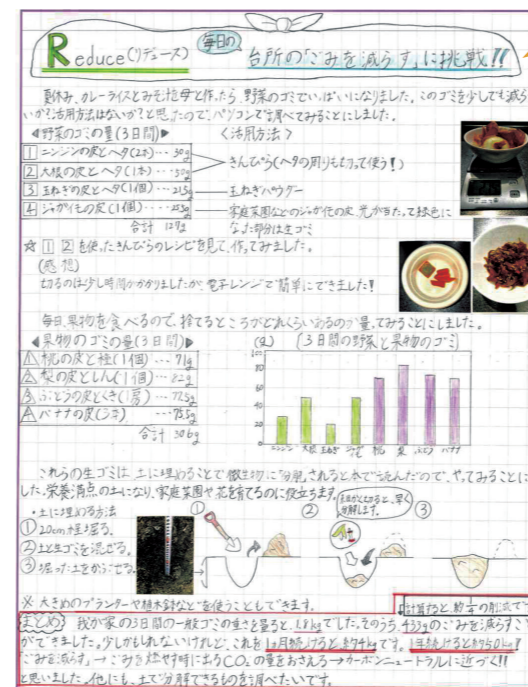 Reduce(リデュース) 毎日の 台所の「ごみを減らす」に挑戦!!
夏休み、カレーライスとみそ汁を母と作ったら、野菜のゴミでいっぱいになりました。このゴミを少しでも減ら
いか?活用方法はないか?と思ったので、パソコンで調べてみることにしました。
◀野菜のゴミの量(3日間)▶ <活用方法>
1 ニンジンの皮とヘタ(2本)… 30g
きんぴら(ヘタの周りも切って使う!)
2 大根の皮とヘタ(1本)…50g
3 玉ねぎの皮とヘタ(1個)…21.5g 玉ねぎパウダー
4 ジャガイモの皮(1個)… 家庭菜園などのジャガイモの皮、光が当たって緑色に
合計 127g なった部分は生ゴミ
☆ 1 2 を使ったきんぴらのレシピを見て、作ってみました。
(感想)
切るのは少し時間がかかりましたが、電子レンジで簡単にできました!
毎日、果物を食べるので、捨てるところがどれくらいあるのか量ってみることにしました。
◀果物のゴミの量(3日間)▶
1 桃の皮と種(1個)…71g
2 梨の皮としん(1個)…82g
3 ぶどうの皮とくき(1房)…77.5g
4 バナナの皮(2本)…75.5g
合計 306g
(g) [3日間の野菜と果物のゴミ]
100
80
60
40
20
0
ニンジン 大根 玉ねぎ ジャガイモ 桃 梨 ぶどう バナナ
これらの生ゴミは、土に埋めることで微生物に「分解」されると本で読んだので、やってみることに
した。栄養満点の土になり、家庭菜園や花を育てるのに役立ちます。
細かく切ると、早く分解します。
・土に埋める方法
① 20cm程掘る。
② 土と生ゴミを混ぜる。
③ 掘った土をかぶせる。
① ② ③
※ 大きめのプランターや植木鉢などを使うこともできます。
計算すると、約1/4の削減で
まとめ 我が家の3日間の一般ゴミの重さを量ると、1.8kgでした。そのうち、433gのごみを減らすこ
ができました。少しかもしれないけれど、これを1ヶ月続けると約4kgです。1年続けると約50kg!
「ごみを減らす」→ごみを燃やす時に出るCO₂の量をおさえる→カーボンニュートラルに近づく!!
と思いました。他にも、土で分解できるものを調べたいです。